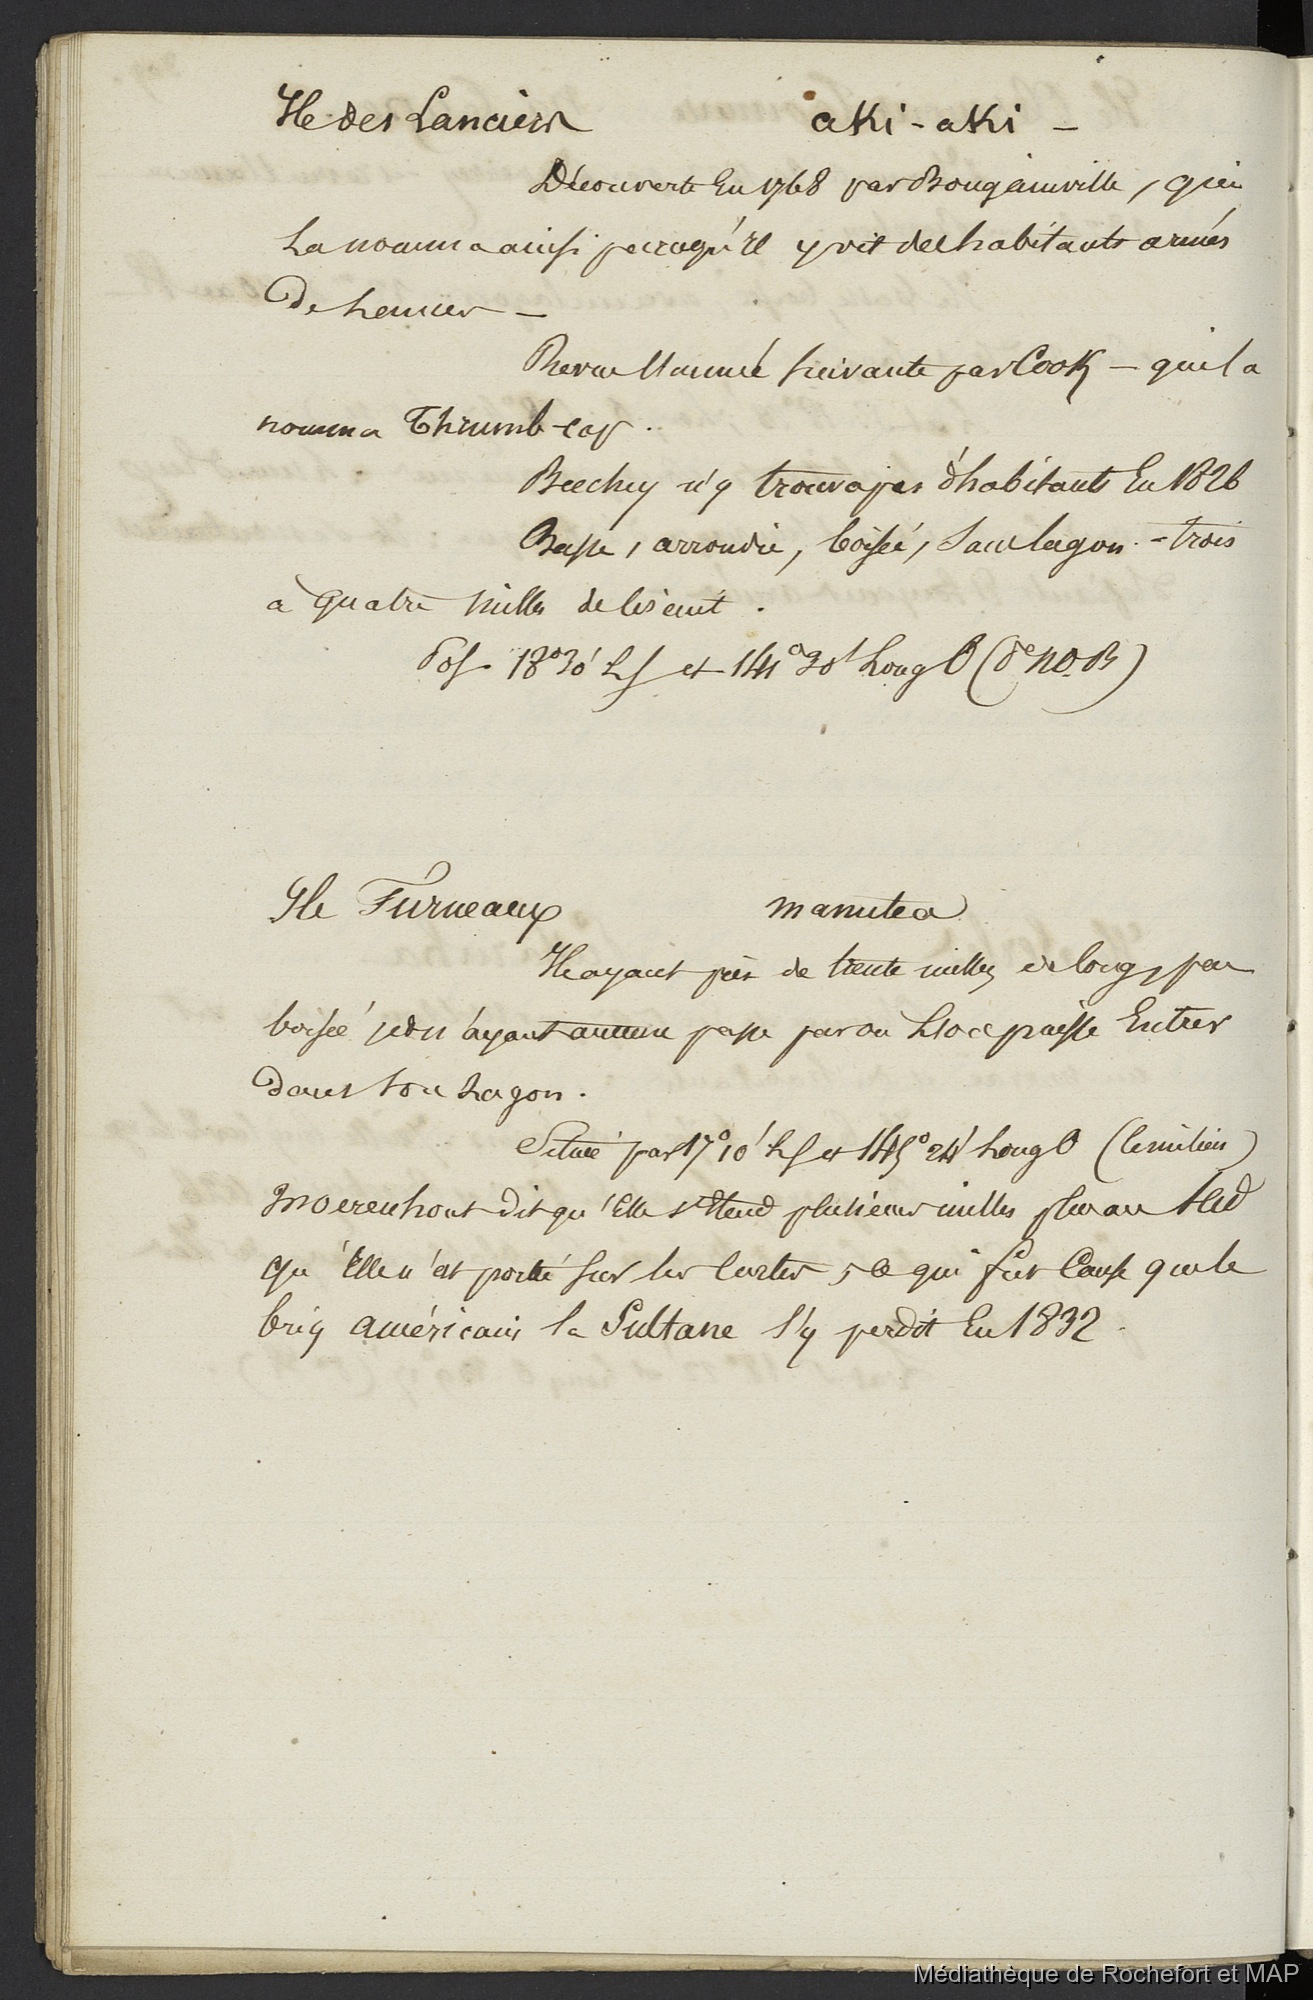 Ile des Lanciers aki-aki -
Découverte En 1768 par Bougainville, qui
La nomma ainsi parcequ'Il y vit des habitants armés
De Lances -
Revue l'année suivante par Cook - qui la
nomma Thrumb-cap.
Beechey n'y trouva pas d'habitants En 1826
Basse, arrondie, boisée, Sans lagon. - trois
à quatre milles de circuit.
Pos. 18° 30' L S et 141° 30' Long O
Ile Furneaux manutea
Ile ayant près de trente milles de long, peu
boisée et n'ayant aucune passe par ou L'on puisse Entrer
Dans Son Lagon.
Située par 17° 10' L S et 145° 24' Long O (le milieu)
Moerenhout dit qu'Elle s'Etend plusieurs milles plus au Sud
qu'Elle n'est portée sur les Cartes, ce qui fut Cause que le
brig américain la Sultane s'y perdit En 1832.
Médiathèque de Rochefort et MAP